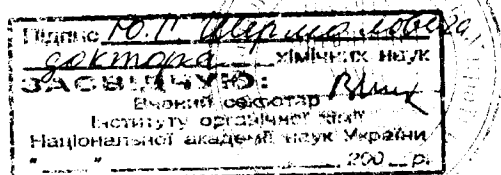 Підпис Ю.Г. Шермоловича
доктора хімічних наук
ЗАСВІДЧУЮ:
Вчений секретар
Інституту органічної хімії
Національної академії наук України
"____" ________ 200__ р.